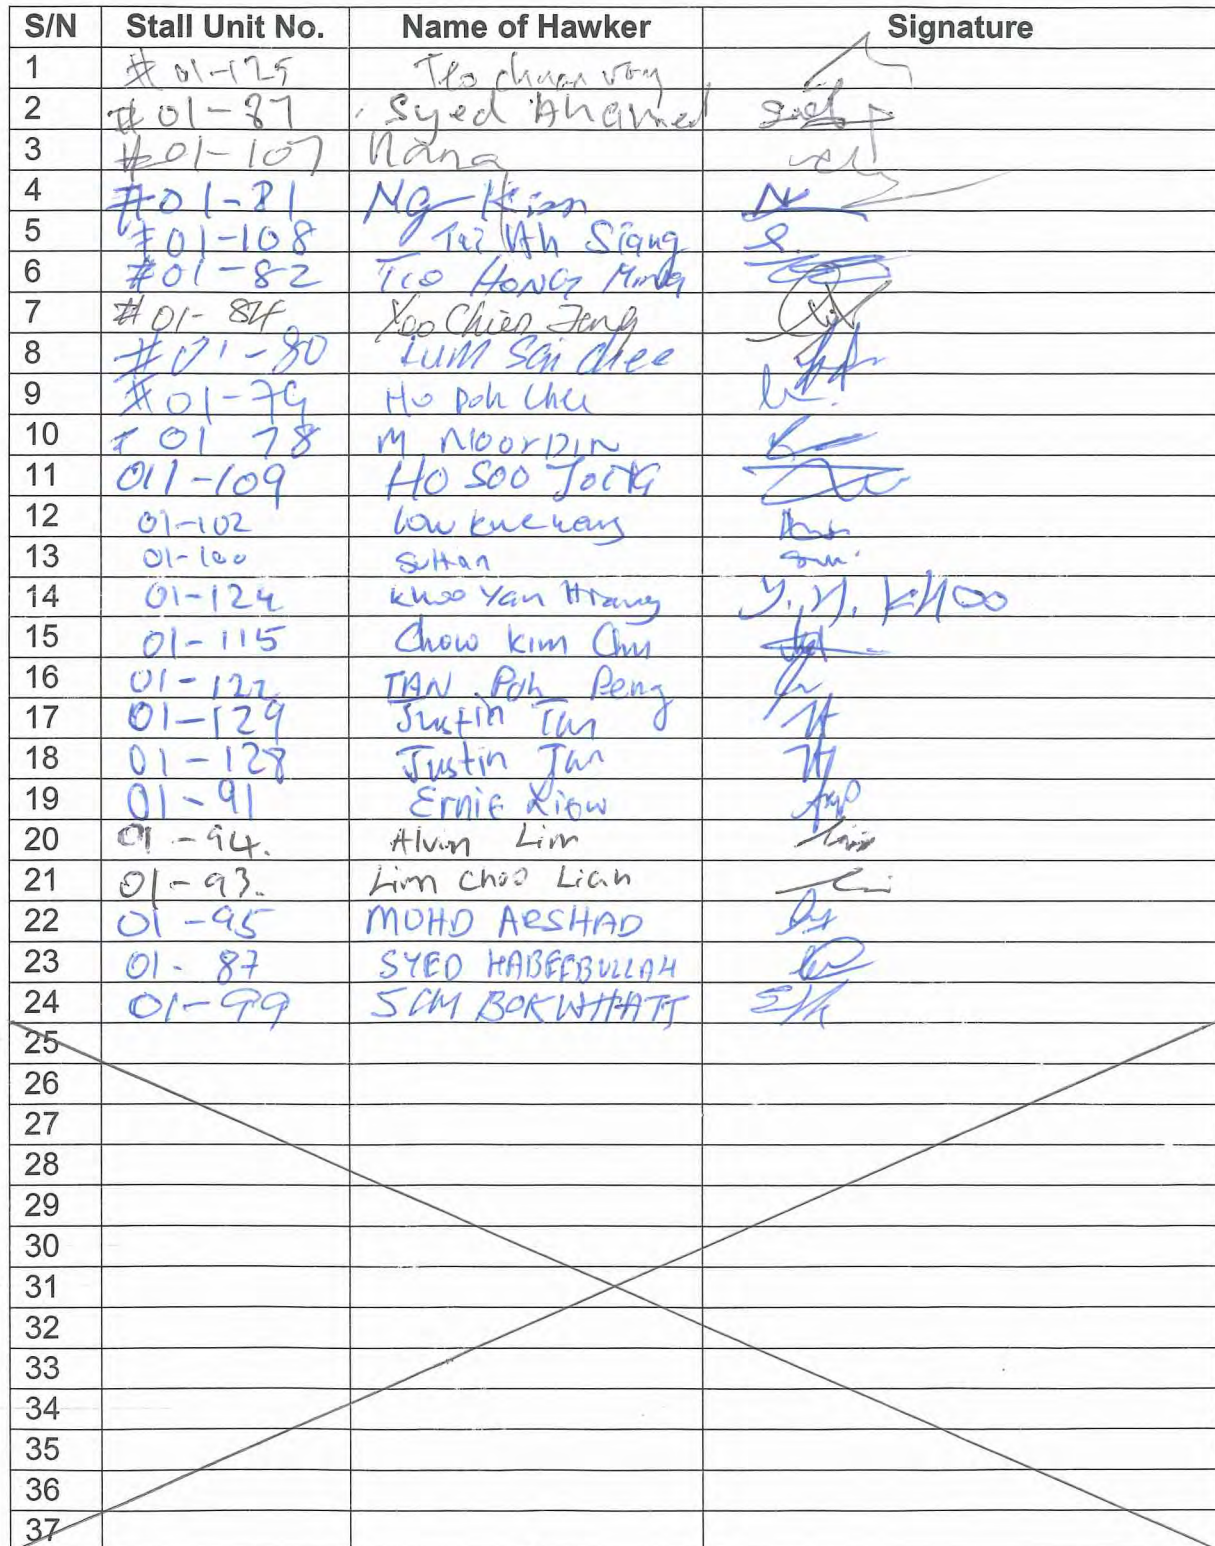 S/N Stall Unit No. Name of Hawker Signature
1 #01-125 Teo chuan
2 #01-87 Syed Ahamed
3 #01-107 Nana
4 #01-81 Ng Kian
5 #01-108 Tai Ah Siang
6 #01-82 Teo HONG Ming
7 #01-84 Yoo Chien Feng
8 #01-80 LUM Sai chee
9 #01-79 Ho Poh Chee
10 #01 78 M NOORDIN
11 011-109 HO SOO
12 01-102 Low
13 01-100 Sultan
14 01-124 Khoo Yan Hiang Y. H. KHOO
15 01-115 Chow Kim
16 01-122 TAN Poh Peng
17 01-129 Justin Tan
18 01-128 Justin Tan
19 01-91 Ernie Liow
20 01-94. Alvin Lim
21 01-93. Lim Choo Lian
22 01-95 MOHD ARSHAD
23 01-87 SYED HABEEBULLAH
24 01-99 SCM BOKWHATT
25
26
27
28
29
30
31
32
33
34
35
36
37